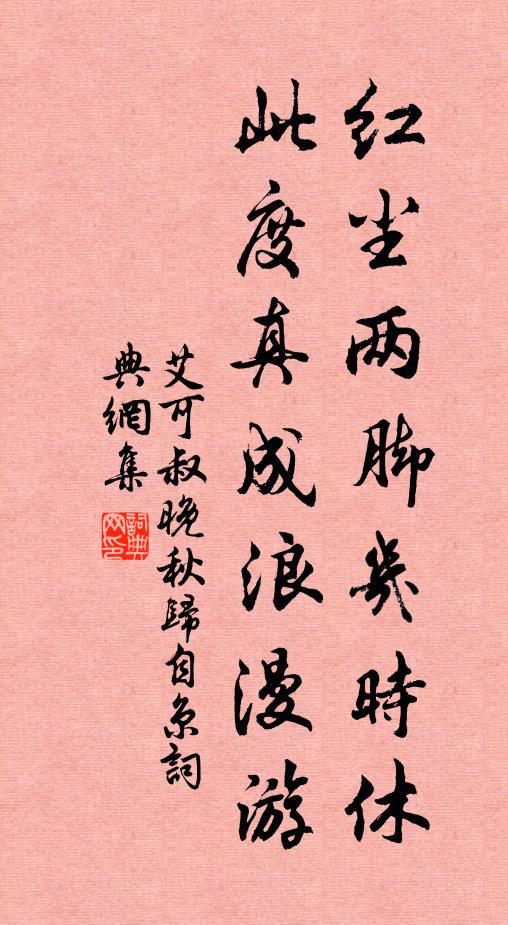 红尘两脚几時休
此度真成浪漫游
艾可叔晚秋歸自京詞
典網集
詞典网印